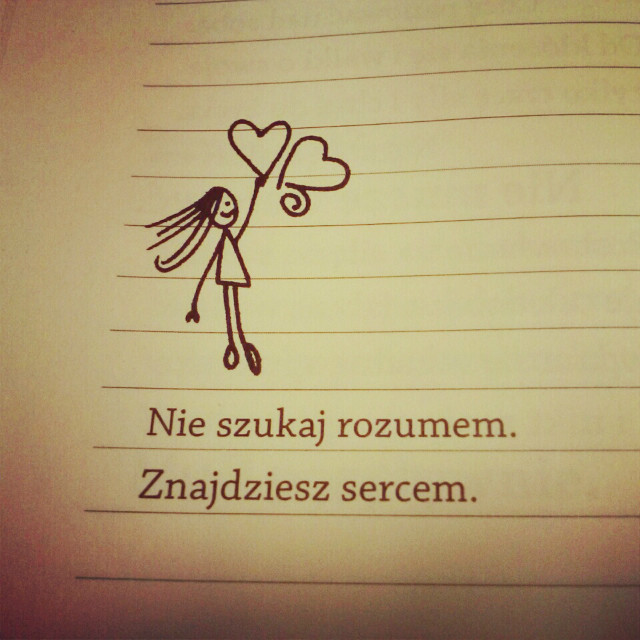 Nie szukaj rozumem.
Znajdziesz sercem.